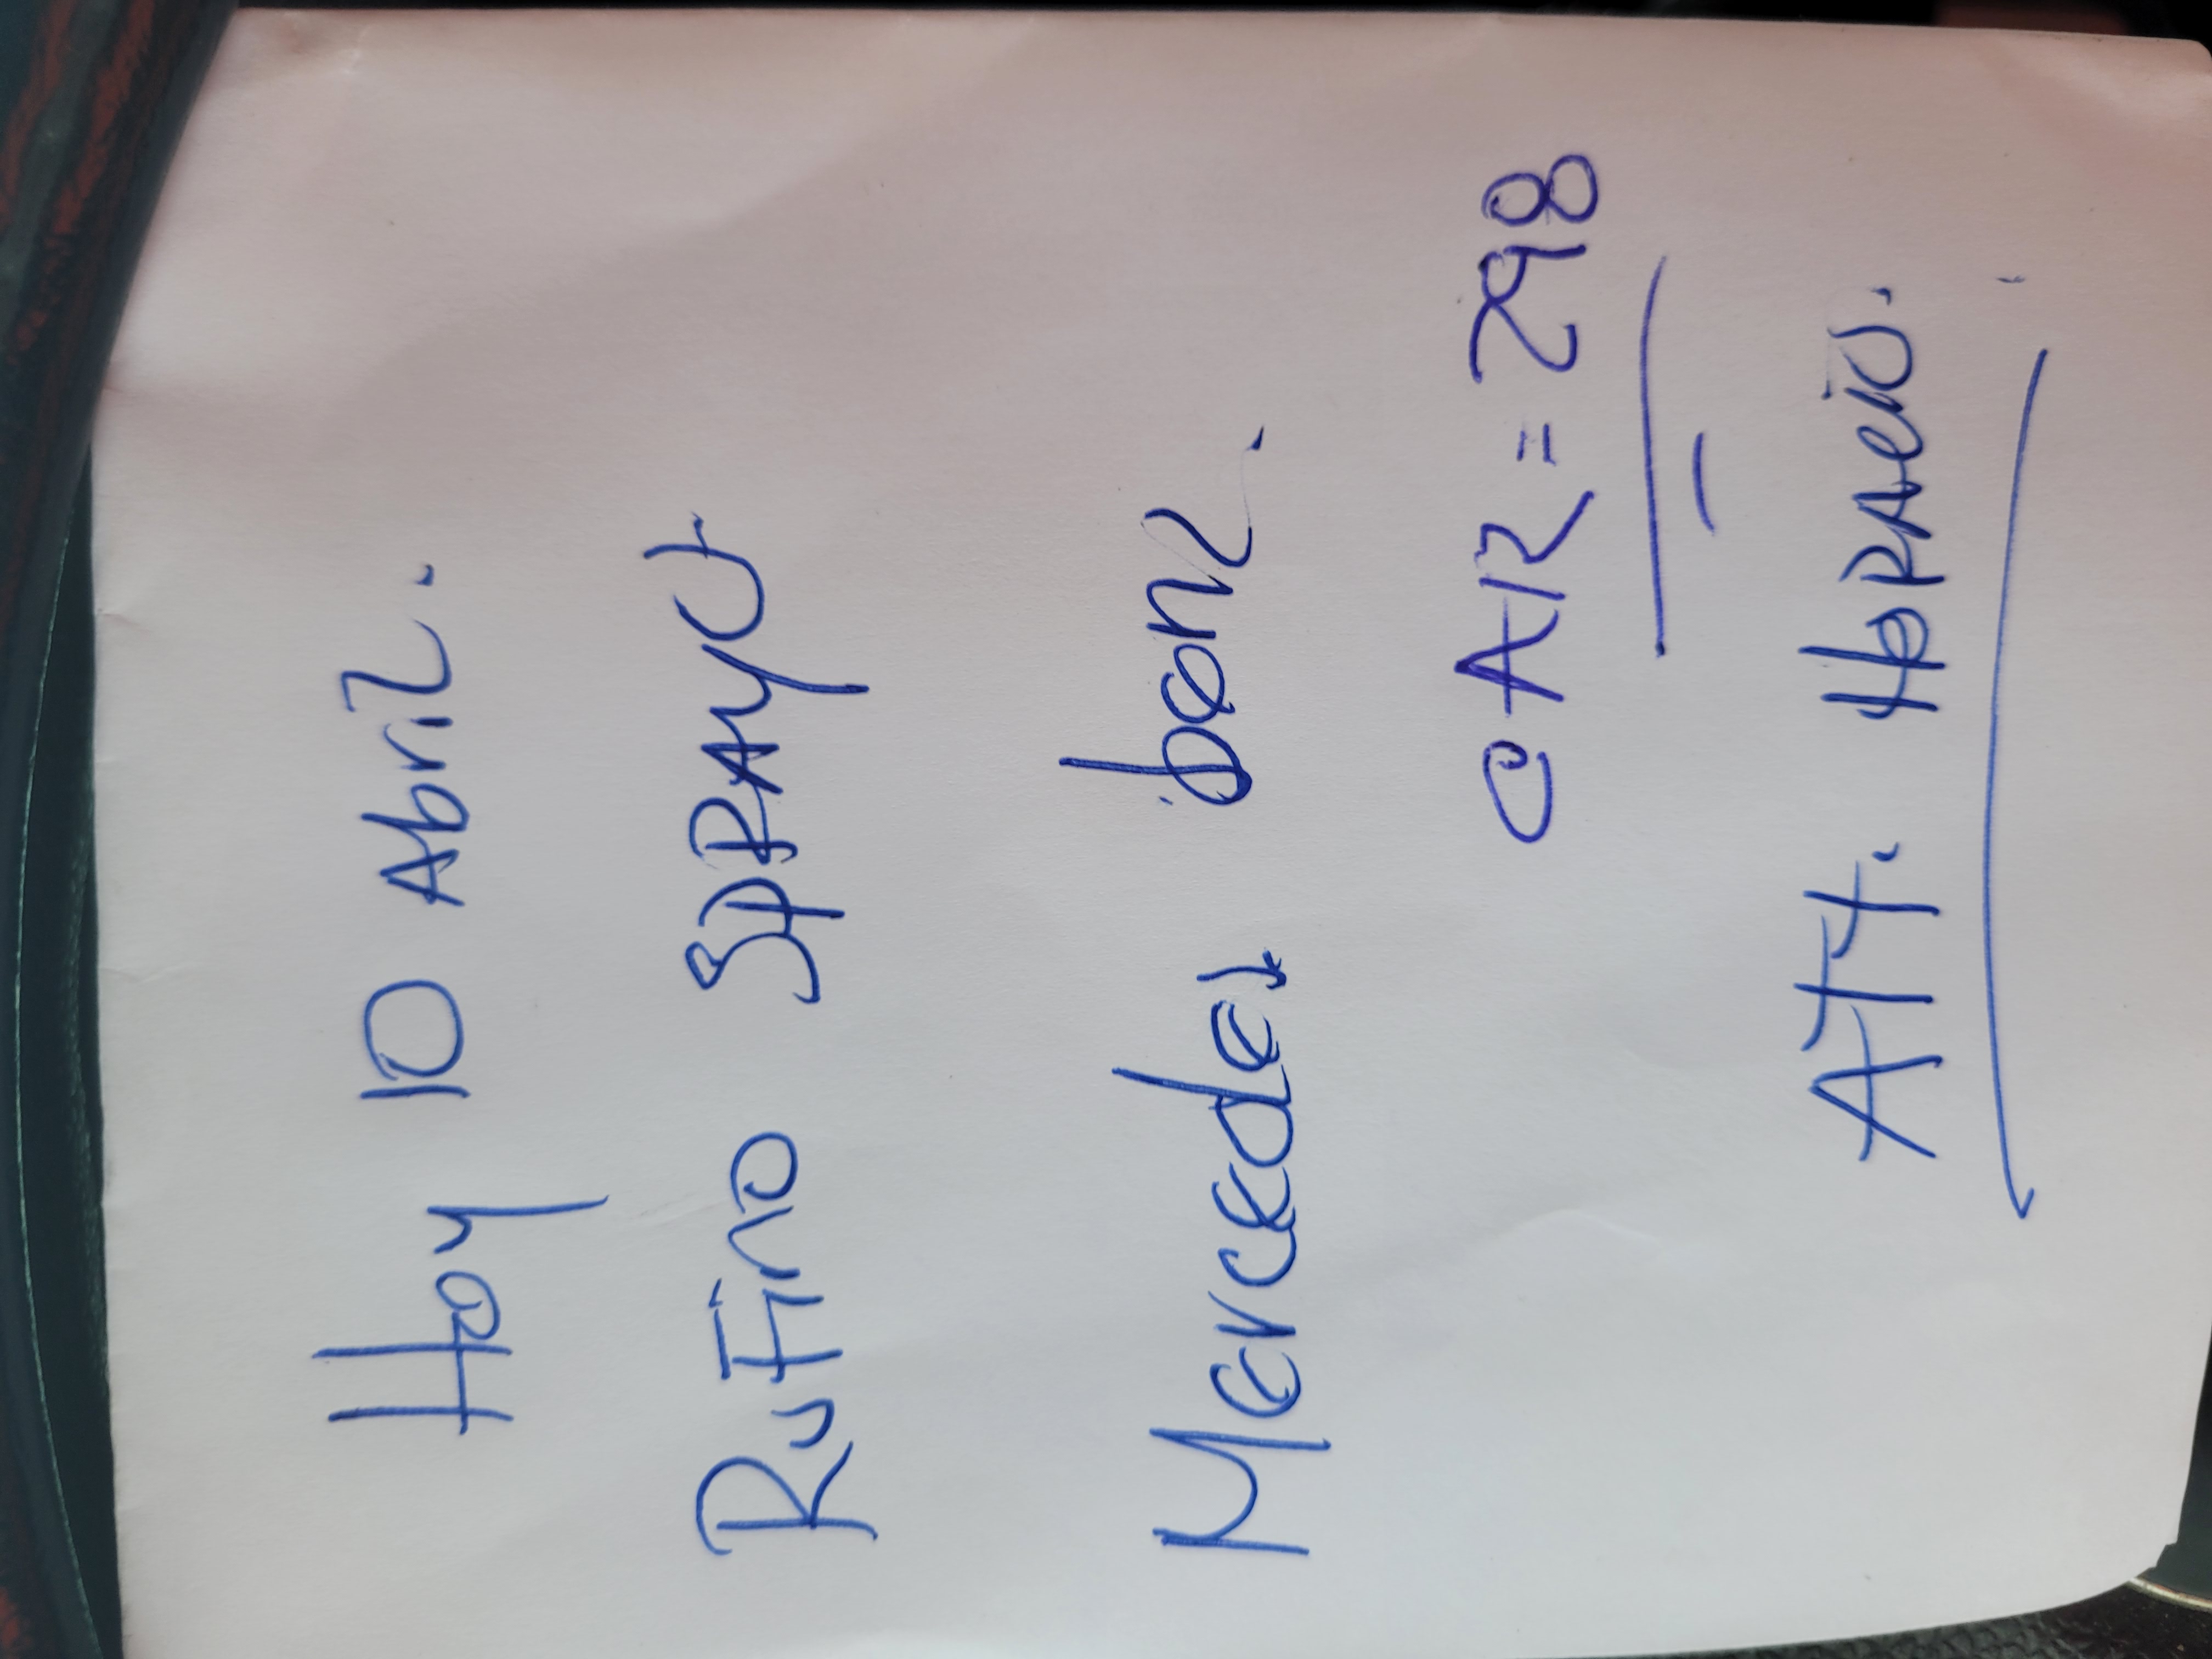 Hoy 10 Abril.
RuFino SPRAYU
Mercedes benz.
CAR = 298
ATT. HORACIO.